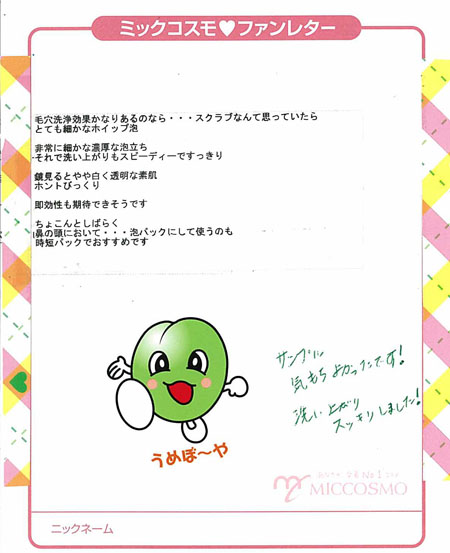 ミックコスモ♥ファンレター
毛穴洗浄効果かなりあるのなら・・・スクラブなんて思っていたら
とても細かなホイップ泡
非常に細かな濃厚な泡立ち
それで洗い上がりもスピーディーですっきり
鏡見るとやや白く透明な素肌
ホントびっくり
即効性も期待できそうです
ちょこんとしばらく
鼻の頭において・・・泡パックにして使うのも
時短パックでおすすめです
サンプル
気もちよかったです!
洗い上がり
スッキリしました!
うめぼ〜や
MICCOSMO
ニックネーム